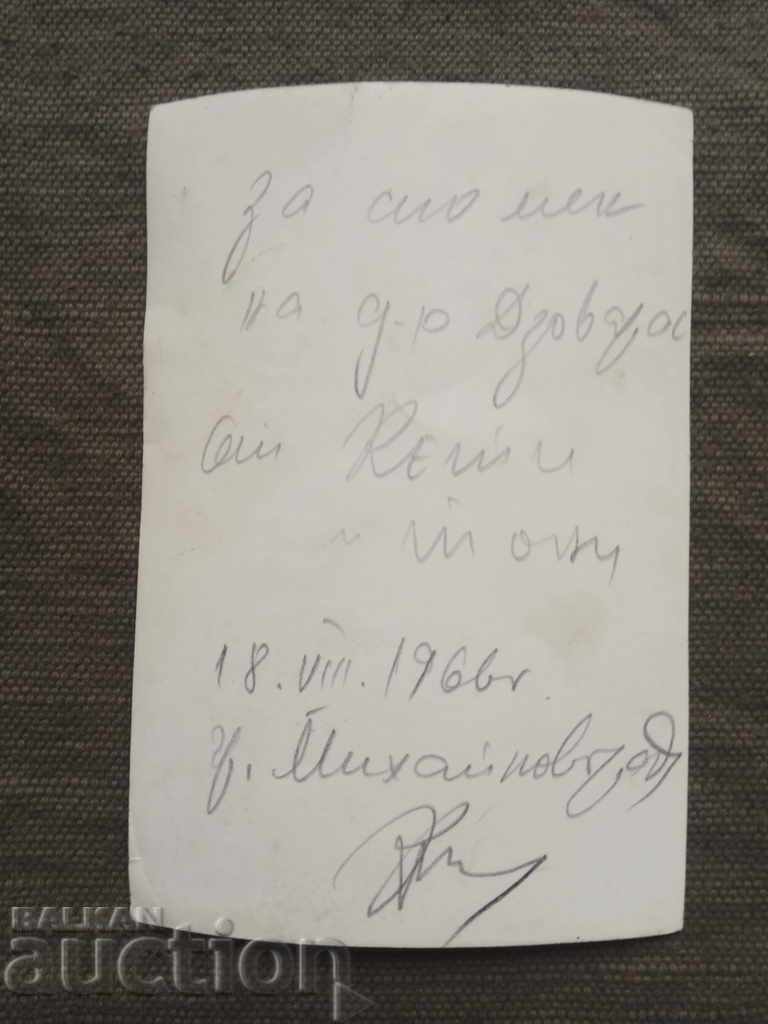 за спомен
на д-р
от Кети
и Тони
18.VIII.1966г.
гр. Михайловград
BALKAN
auction